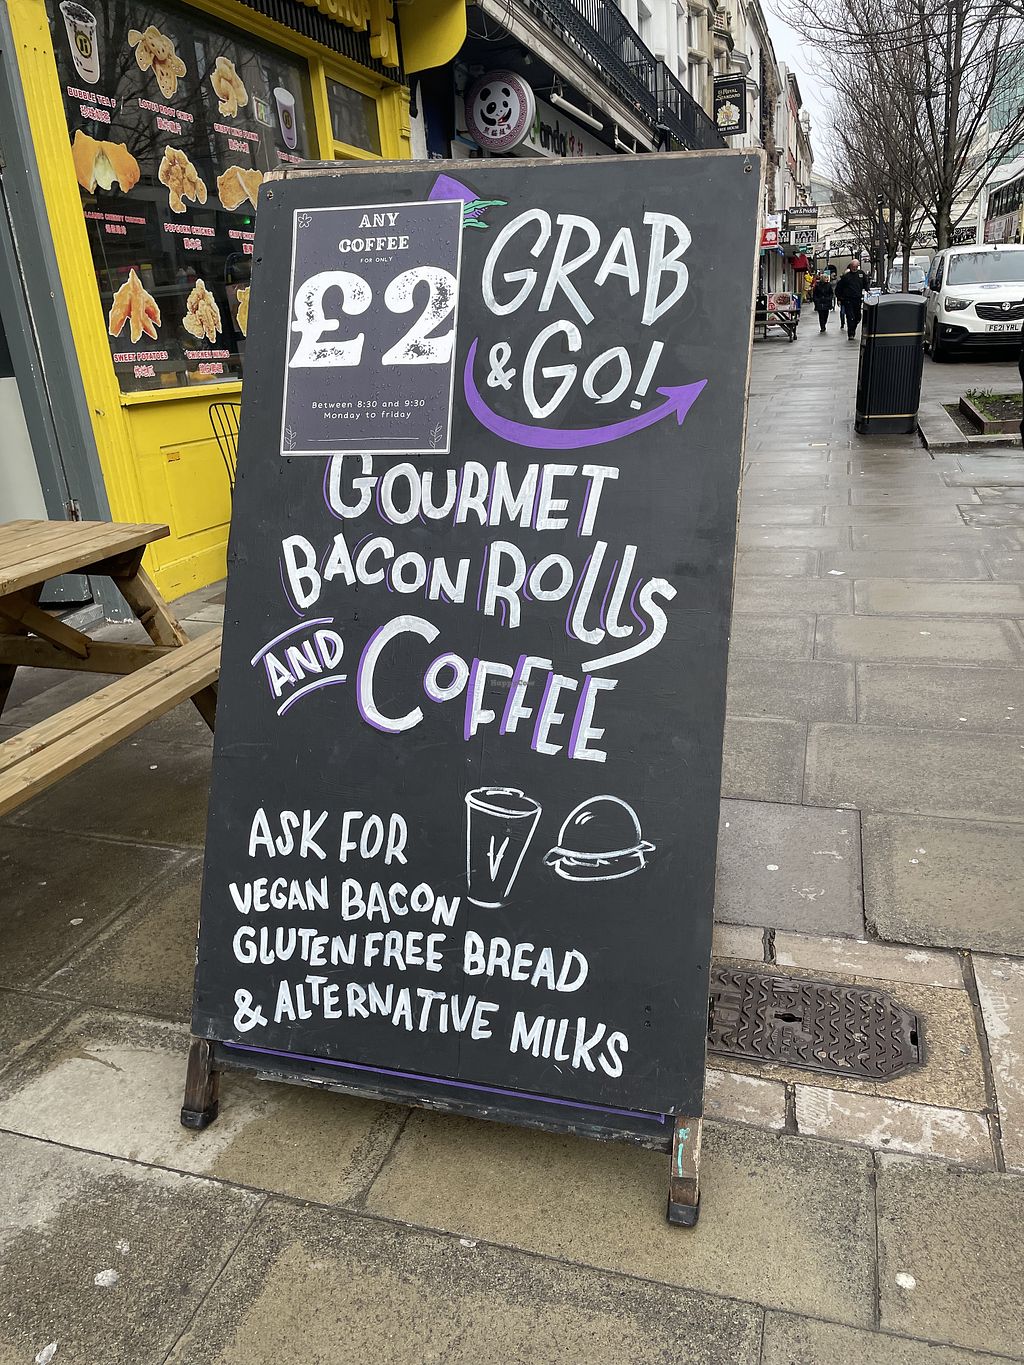 ANY
COFFEE
FOR ONLY
£2
Between 8:30 and 9:30
Monday to friday
GRAB
& GO!
GOURMET
BACON ROLLS
AND COFFEE
V
ASK FOR
VEGAN BACON
GLUTEN FREE BREAD
& ALTERNATIVE MILKS
BUBBLE TEA
LOTUS ROOT CHIPS
POPCORN CHICKEN
SWEET POTATOES
CHICKEN WINGS
FE21 YRL